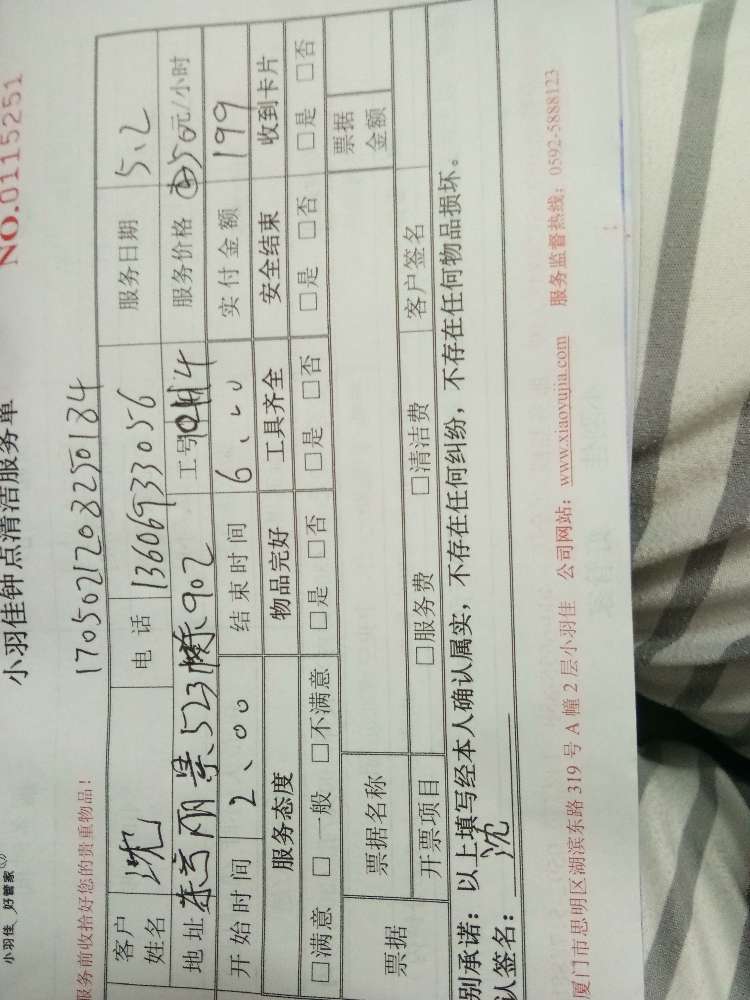 小羽佳 好管家
小羽佳钟点清洁服务单
NO.0115251
服务前收拾好您的贵重物品！
1705021208250184
客户姓名 沈 电话 13606933056 服务日期 5、2
地址 东方丽景523幢902 工号 服务价格 50元/小时
开始时间 2、00 结束时间 6、20 实付金额 199
服务态度 物品完好 工具齐全 安全结束 收到卡片
□满意 □一般 □不满意 □是 □否 □是 □否 □是 □否 □是 □否
票据 票据名称 票据金额
开票项目 □服务费 □清洁费 客户签名
别承诺：以上填写经本人确认属实，不存在任何纠纷，不存在任何物品损坏。
认签名：沈
厦门市思明区湖滨东路319号A幢2层小羽佳 公司网站：www.xiaoyujia.com 服务监督热线：0592-5888123